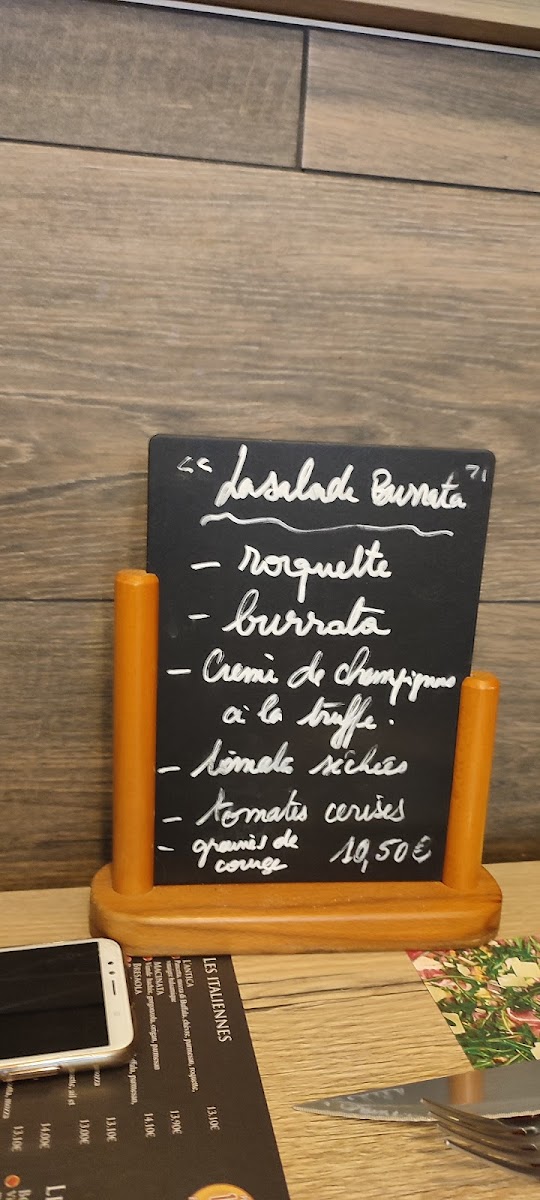 “ La salade Burrata ”
- rorquette
- burrata
- Crème de champignons
à la truffe.
- tomate séchées
- tomates cerises
- graines de
courge 10,50€
LES ITALIENNES
L'ANTICA 13.10€
MACINATA 13.90€
BRESAOLA 14.10€
13.10€
13.00€
14.00€
13.10€